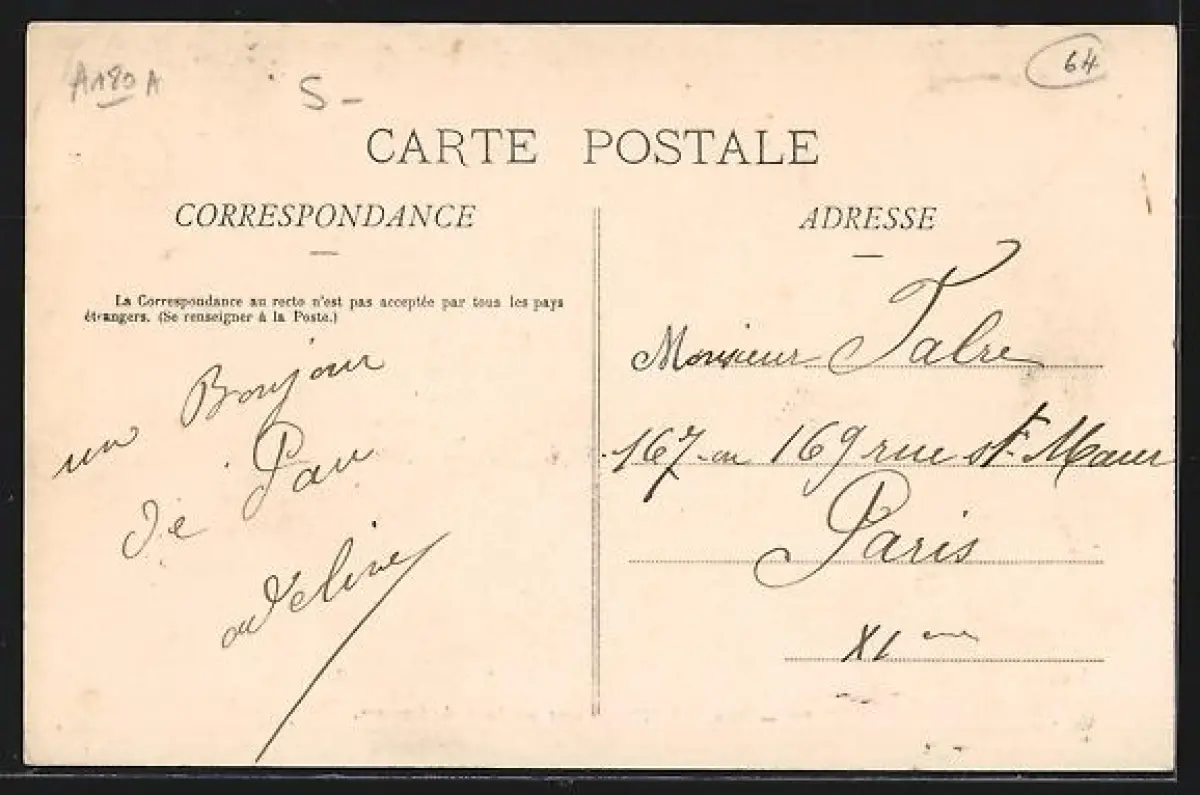 A180A
S-
64
CARTE POSTALE
CORRESPONDANCE
La Correspondance au recto n'est pas acceptée par tous les pays
étrangers. (Se renseigner à la Poste.)
un Bonjour
de Pau
Adeline
ADRESSE
Monsieur Fabre
167 ou 169 rue St. Maur
Paris
XIeme